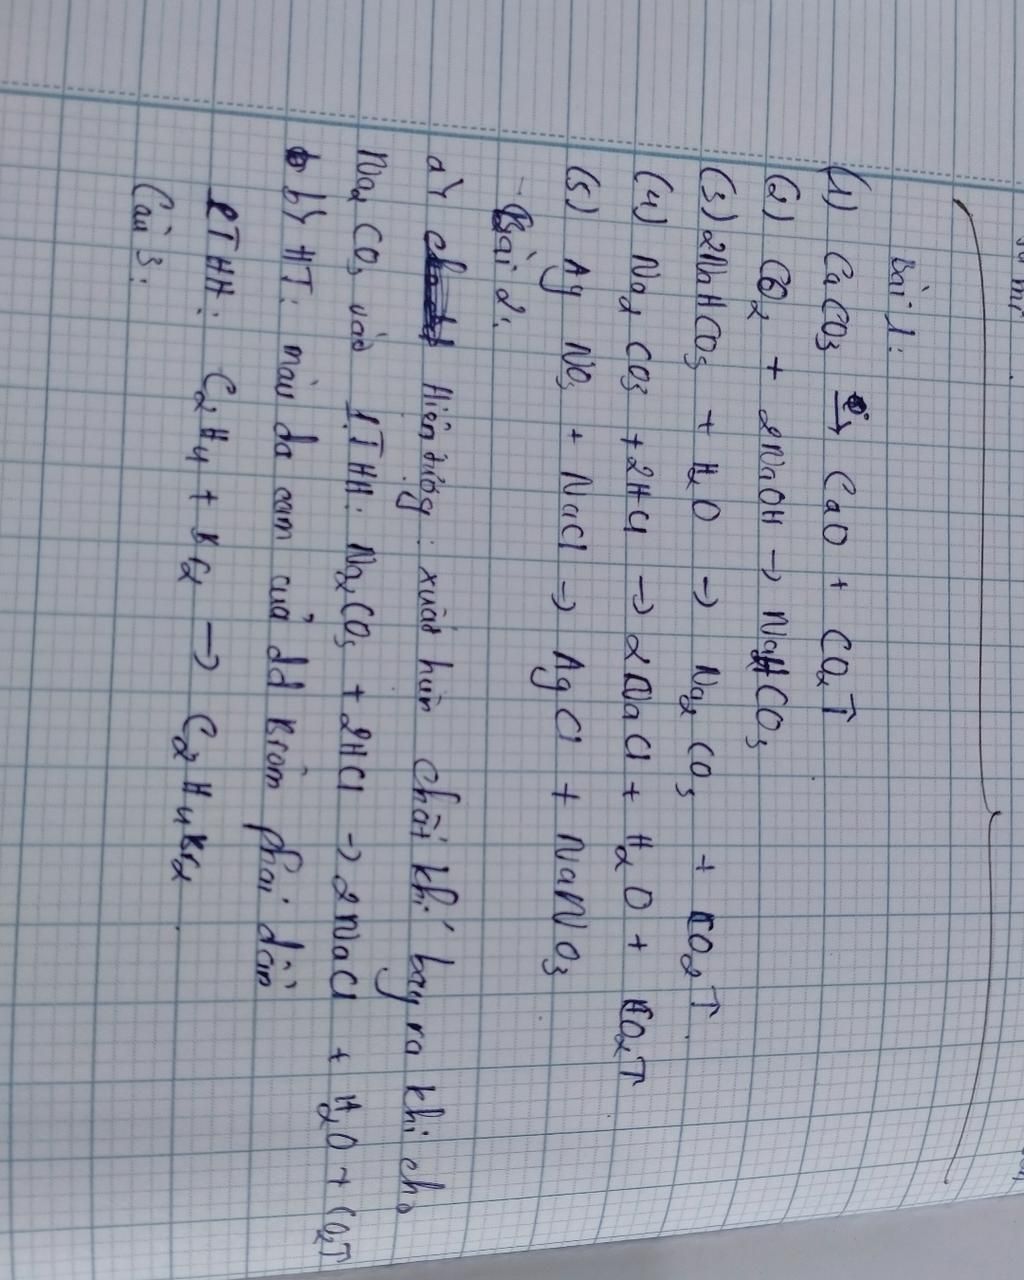 Bài 1:
(1) CaCO3 → CaO + CO2↑
(2) CO2 + 2NaOH → NaHCO3
(3) 2NaHCO3 + H2O → Na2CO3 + CO2↑
(4) Na2CO3 + 2HCl → 2NaCl + H2O + CO2↑
(5) AgNO3 + NaCl → AgCl + NaNO3
- Bài 2:
a) Hiện tượng: xuất hiện chất khí bay ra khi cho
Na2CO3 vào PTHH: Na2CO3 + 2HCl → 2NaCl + H2O + CO2↑
b) HT: màu da cam của dd Brom phai dần
PTHH: C2H4 + Br2 → C2H4Br2
Câu 3: